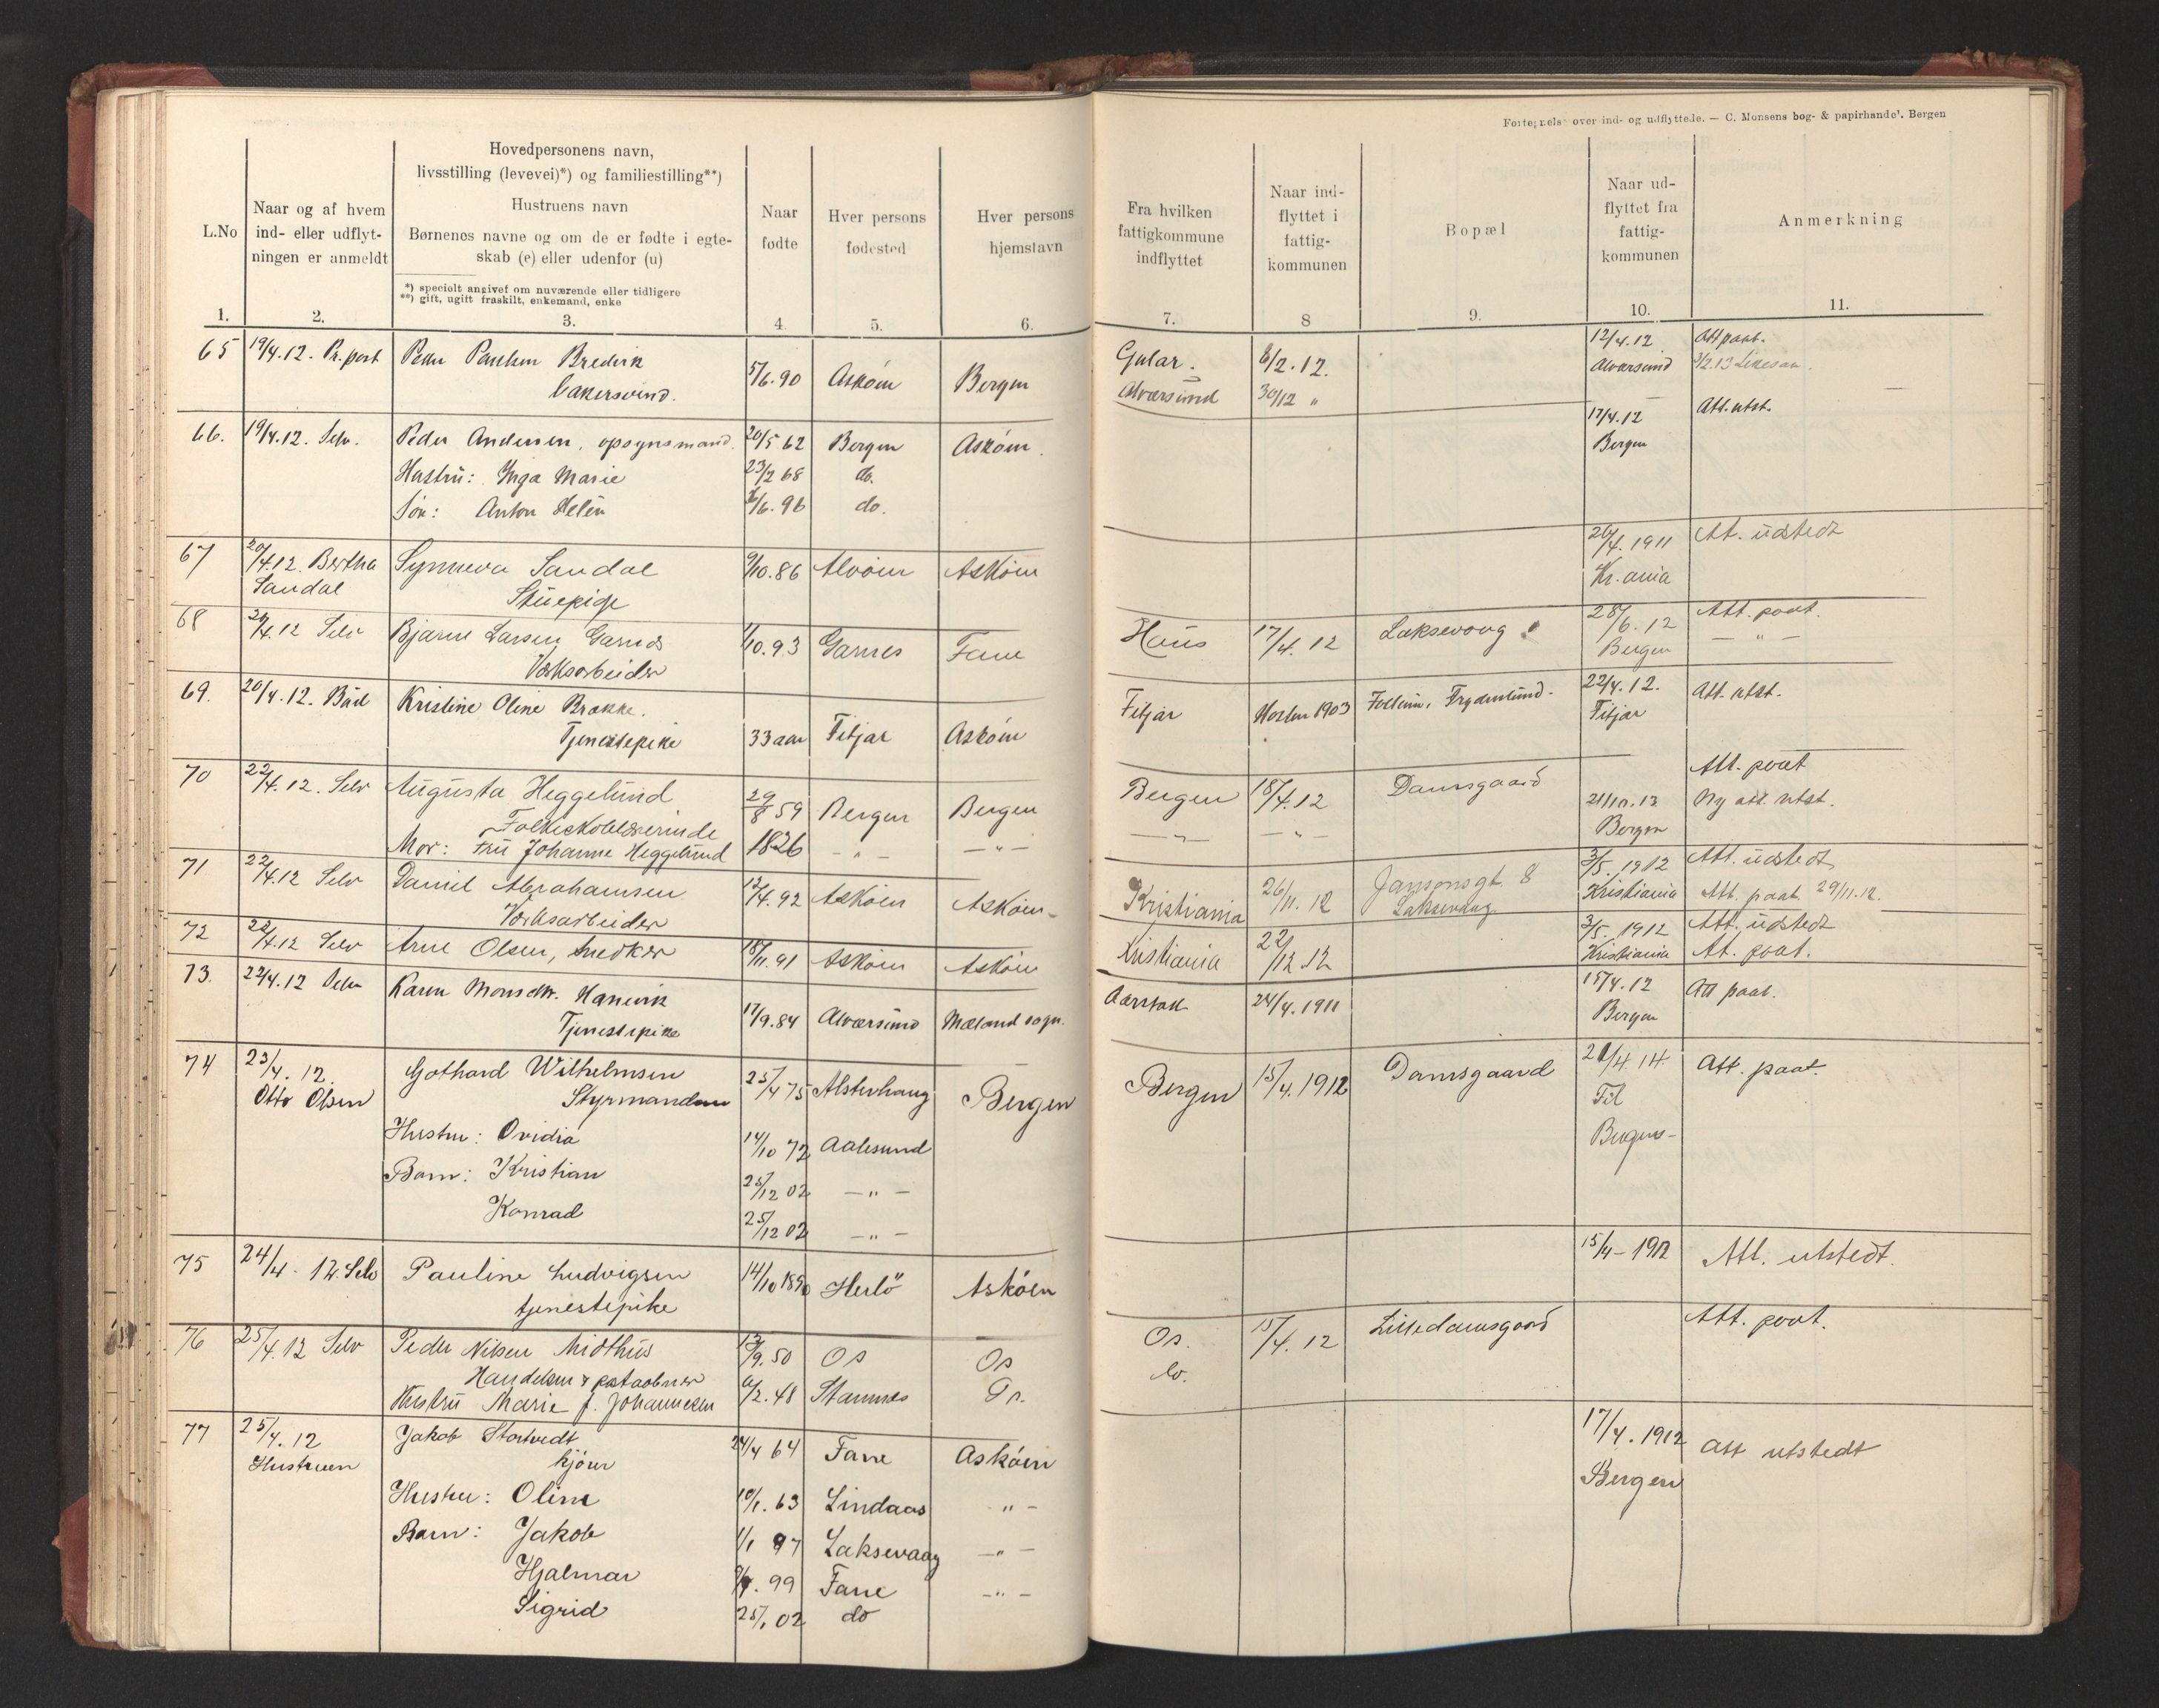 Fortegnelse over ind- og udflyttede. — C. Monsens bog- & papirhandel. Bergen
L.No
Naar og af hvem
ind- eller udflyt-
ningen er anmeldt
Hovedpersonens navn,
livsstilling (levevei)*) og familiestilling**)
Hustruens navn
Børnenes navne og om de er fødte i egte-
skab (e) eller udenfor (u)
*) specielt angivet om nuværende eller tidligere
**) gift, ugift fraskilt, enkemand, enke
Naar
fødte
Hver persons
fødested
Hver persons
hjemstavn
Fra hvilken
fattigkommune
indflyttet
Naar ind-
flyttet i
fattig-
kommunen
Bopæl
Naar ud-
flyttet fra
fattig-
kommunen
Anmerkning
1. 2. 3. 4. 5. 6. 7. 8 9. 10. 11.
65 19/4.12. Pr. post Peder Paulsen Bredvik 5/6.90 Askøen Bergen Gular. 6/2.12. 12/4.12 Att paat.
bakersvend. Alværsund 30/12 " Alværsund
66. 19/4.12. Selv. Peder Andersen, opsynsmand. 20/5 62 Bergen Askøen. 17/4.12 Att. utst.
Hustru: Inga Marie 23/2 68 do. Bergen
Søn: Anton Helén 6/6.96 do.
67 20/4.12. Bertha Synneva Sandal 9/10.86 Alvøen Askøen 26/4.1911 At. udstedt
Sandal Stuepige Kr.ania
68 20/4.12 Selv Bjarne Larsen Garnes 1/10.93 Garnes Fane Haus 17/4.12 Laksevaag 28/6.12 Att. paat.
Værksarbeider Bergen — " —
69. 20/4.12. Bud Kristine Oline Brekke. Fitjar Høsten 1903 22/4.12. Att. utst.
Tjenestepike 33 aar Fitjar Askøen Fitjar
70 22/4.12. Selv Augusta Heggelund 29/8 59 Bergen Bergen Bergen 18/4.12 Damsgaard Att. paat
Folkeskolelærerinde 21/10.13 Ny att. utst.
Mor: Fru Johanne Heggelund 1826 — " — — " — — " — — " — Bergen
71 22/4.12 Selv Daniel Abrahamsen 12/4.92 Askøen Askøen Kristiania 26/11.12 Jansonsgt. 8 3/5.1912 Att. udstedt
Værksarbeider Laksevaag Kristiania Att. paat. 29/11.12.
72 22/4.12 Selv Arne Olsen, snedker 18/11.91 Askøen Askøen Kristiania 22/12.12 3/5.1912 Att. udstedt
Kristiania At. paat.
73. 22/4.12 Selv Karen Monsdtr. Hanevik Aarstad 24/4.1911 15/4.12 Att paat.
Tjenestepike 17/9.84 Alværsund Mæland sogn. Bergen
74 23/4.12. Gothard Wilhelmsen 25/4 75 Alstenhaug Bergen Bergen 15/4.1912 Damsgaard 21/4.14. Att. paat.
Otto Olsen Styrmand Til
Hustru: Ovidia 14/10 72 Aalesund Bergen
Barn: Kristian 25/12 02 — " —
Konrad 25/12 02 — " —
75 24/4-12. Selv Pauline Ludvigsen 14/10 1890 Herlö Askøen 15/4-1912 Att. utstedt.
tjenestepike
76 25/4.12 Selv Peder Nilsen Midthus 13/9.50 Os Os Os. 15/4.12 Lilledamsgaard Att. paat.
Handelsm & postaabner do.
Hustru Marie f. Johannesen 6/2.48 Stamnes
77 25/4.12 Jakob Stortvedt 24/4 64 Fane Askøen 17/4.1912 Att utstedt
Hustruen kjører Bergen
Hustru: Oline 10/1.63 Lindaas " —
Barn: Jakob 1/1 97 Laksevaag — " —
Hjalmar 99 Fane — " —
Sigrid 25/1 02 do